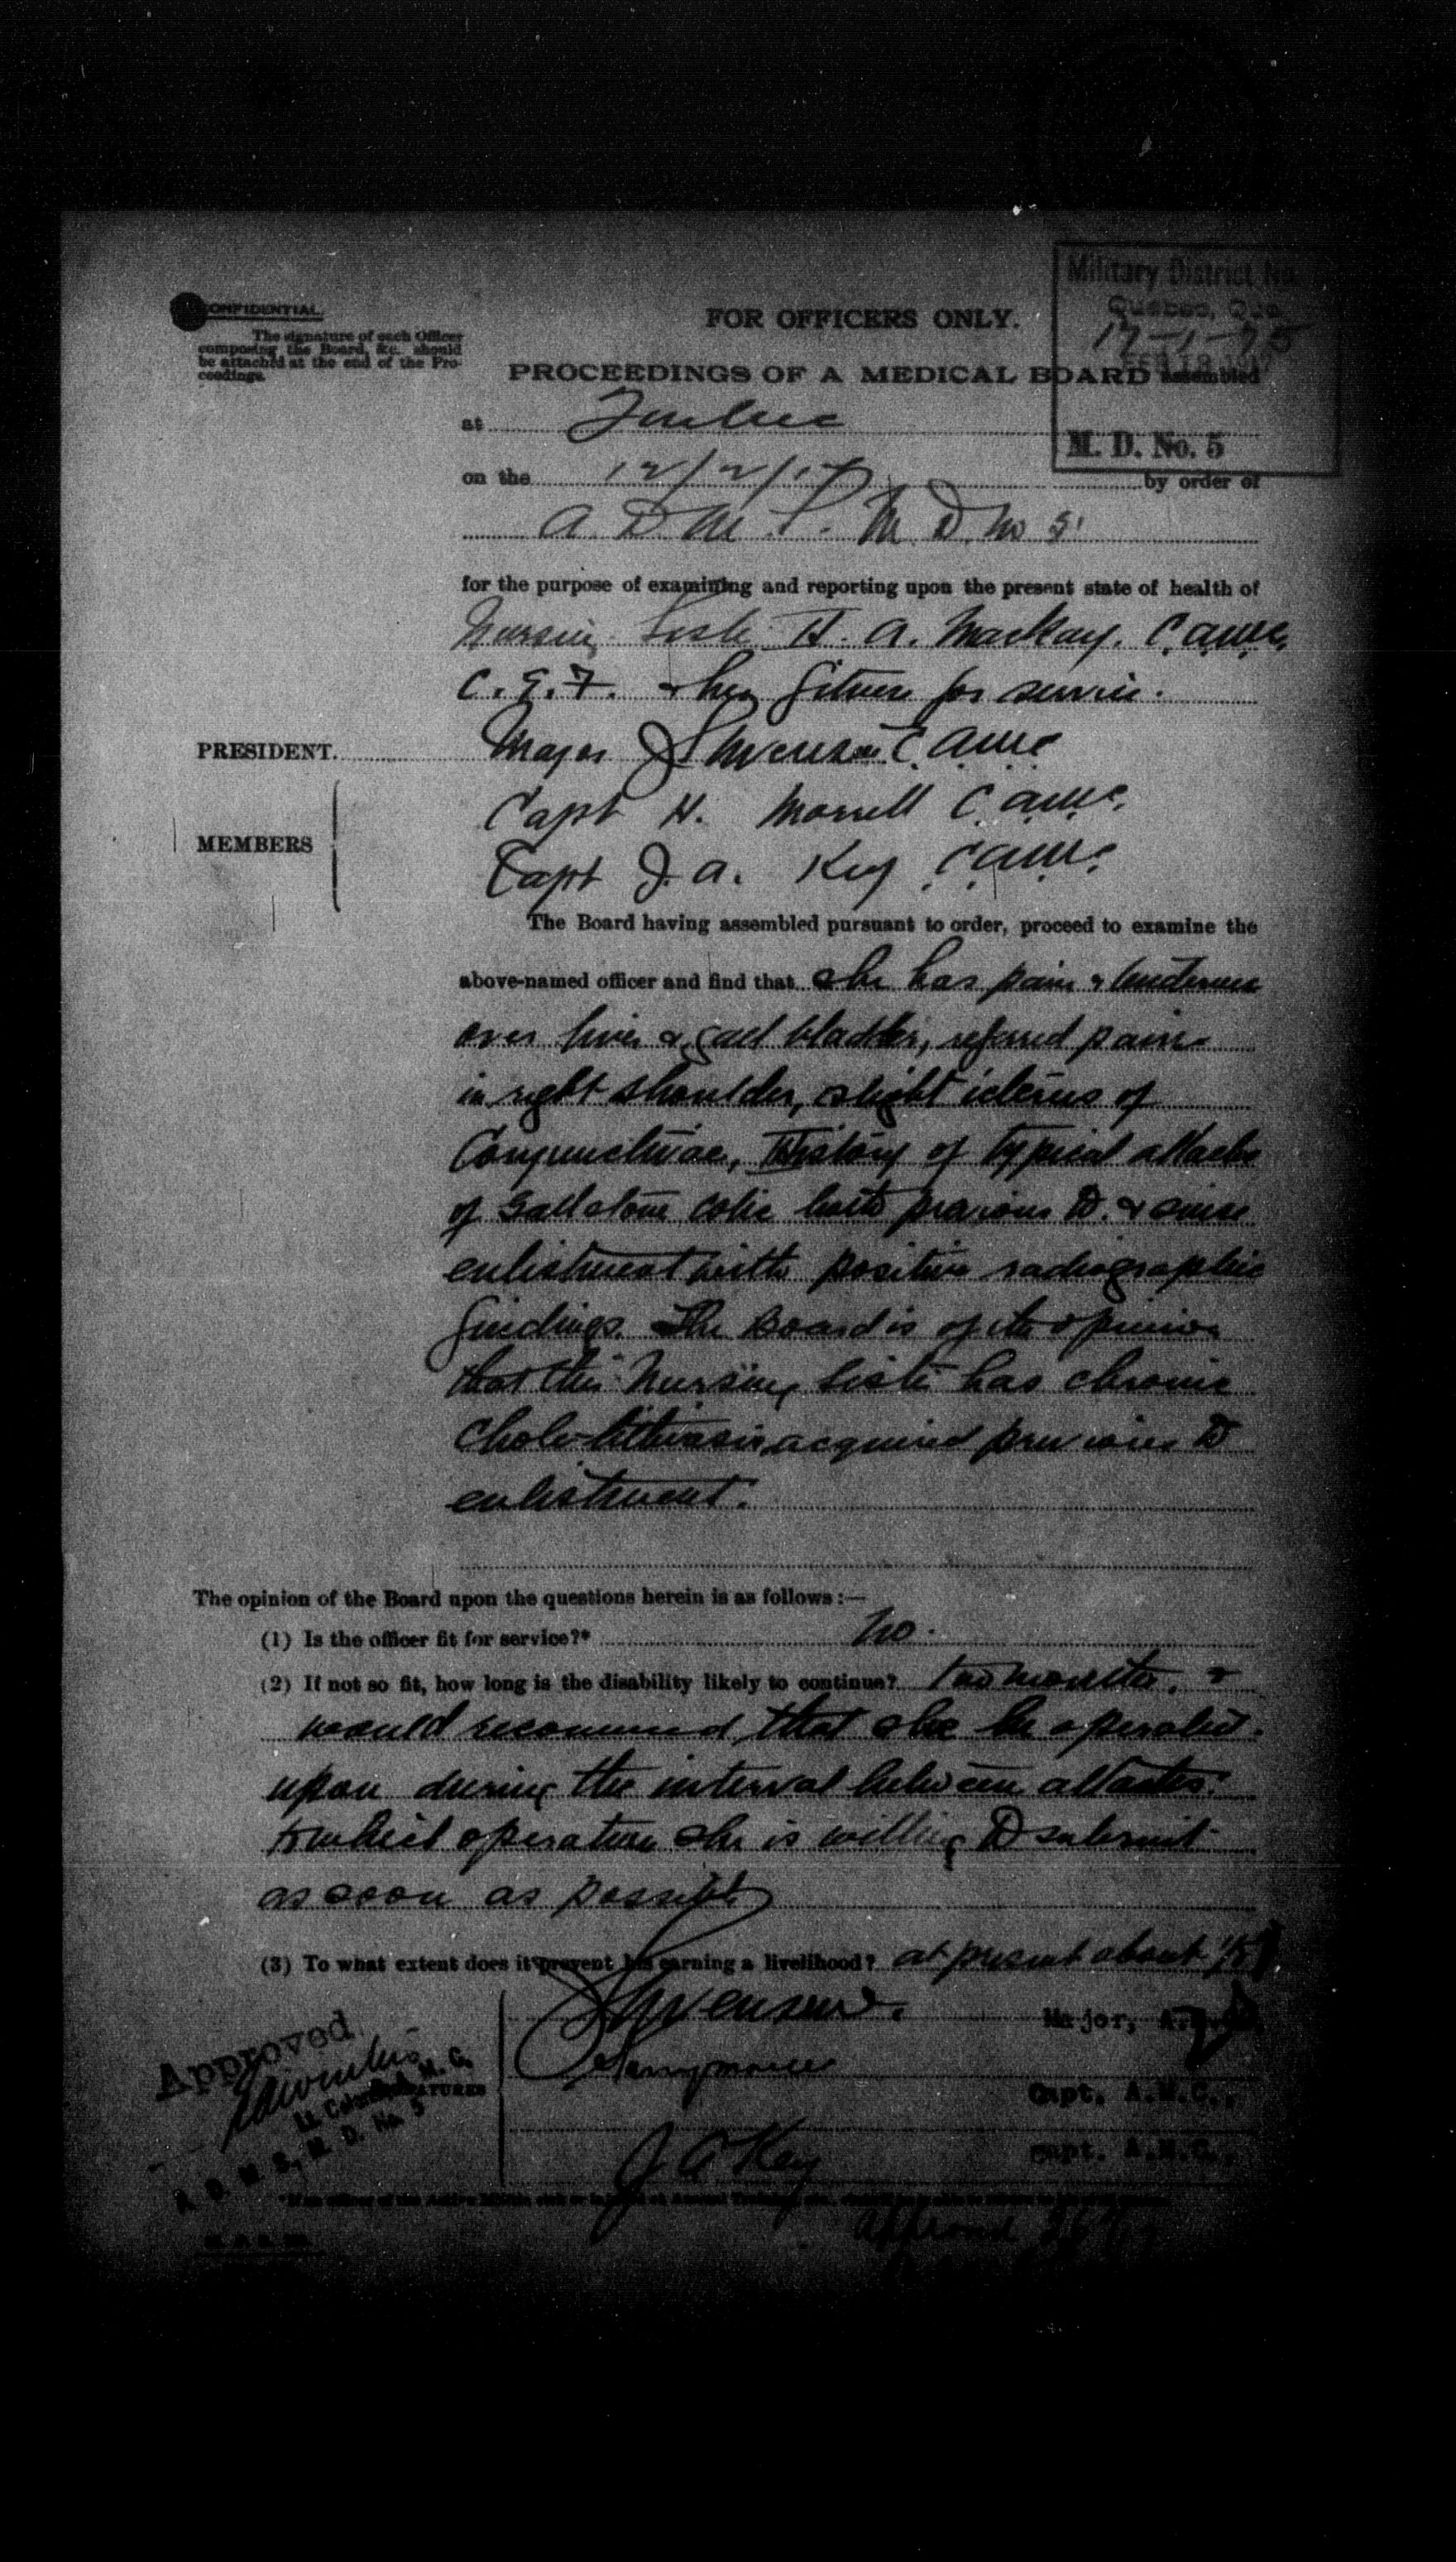 CONFIDENTIAL.
The signature of each Officer
composing the Board, &c., should
be attached at the end of the Pro-
ceedings.
Military District No.
Quebec, Que.
17-1-75
FEB 19 1917
M. D. No. 5
FOR OFFICERS ONLY.
PROCEEDINGS OF A MEDICAL BOARD assembled
at Quebec
on the 12/2/17 by order of
A. D. M. S. M. D. No 5
for the purpose of examining and reporting upon the present state of health of
Nursing Sister H. A. MacKay. C.A.M.C.
C.E.F. & her fitness for service.
PRESIDENT. Major C.A.M.C
MEMBERS
Capt H. C.A.M.C.
Capt J. A. Key C.A.M.C.
The Board having assembled pursuant to order, proceed to examine the
above-named officer and find that she has pain & tenderness
over liver & gall bladder, referred pain
in right shoulder, slight icterus of
Conjunctivae, History of typical attacks
of Gallstone colic both previous to & since
enlistment with positive radiographic
findings. The Board is of the opinion
that this Nursing Sister has chronic
Chole-lithiasis, acquired previous to
enlistment.
The opinion of the Board upon the questions herein is as follows:—
(1) Is the officer fit for service?* No.
(2) If not so fit, how long is the disability likely to continue? two months, &
would recommend that she be operated
upon during the interval between attacks.
to which operation she is willing to submit
as soon as possible
(3) To what extent does it prevent his earning a livelihood? at present about
Major, A.M.C.
Capt. A.M.C.,
J A Key Capt. A.M.C.,
SIGNATURES
Approved
Lt. Colonel A. M. C.
A. D. M. S., M. D. No. 5
Approved